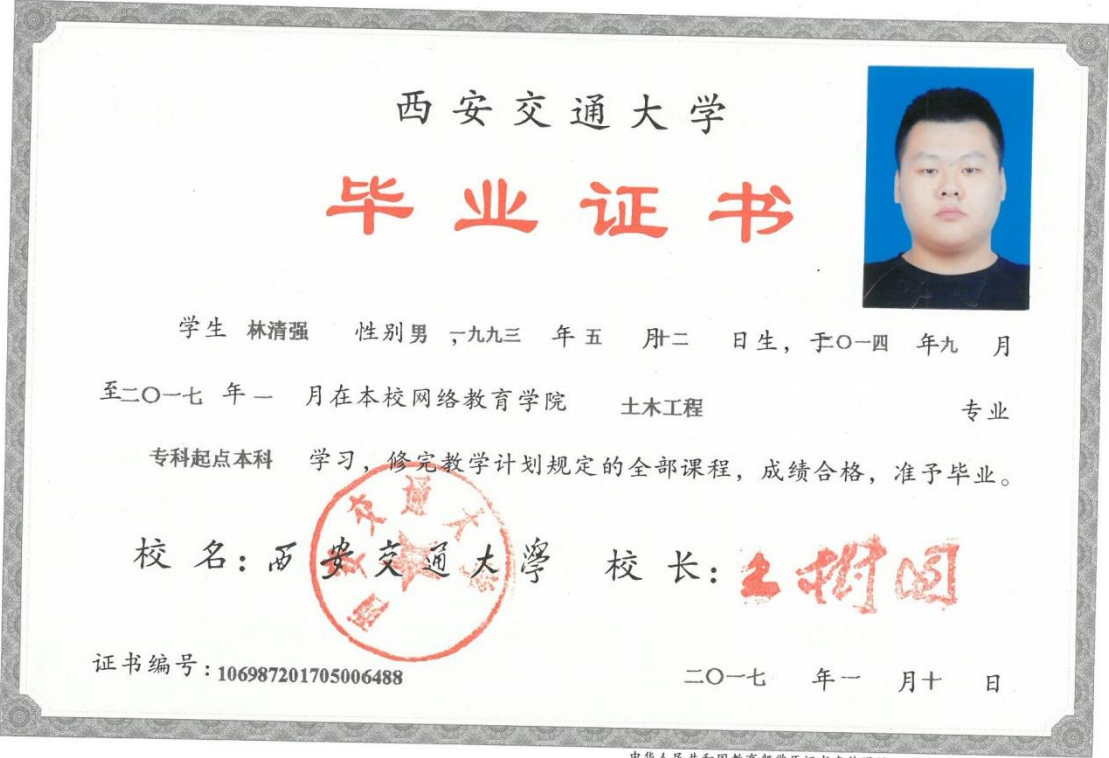 西安交通大学
毕业证书
学生 林清强 性别 男 ,一九九三 年 五 月十二 日生，于二〇一四 年九 月
至二〇一七 年 一 月在本校网络教育学院 土木工程 专业
专科起点本科 学习，修完教学计划规定的全部课程，成绩合格，准予毕业。
校 名：西安交通大學 校 长：王树国
西安交通大学
证书编号：106987201705006488 二〇一七 年 一 月十 日